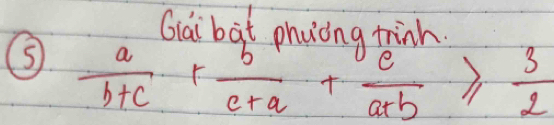 Giải bất phương trình.
⑤ a/(b+c) + b/(c+a) + c/(a+b) ⩾ 3/2